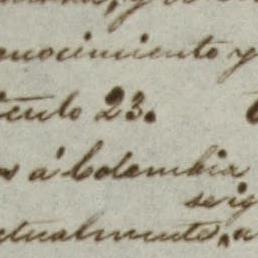 nocimiento y
ículo 23.
á Colombia
ctualmente, a